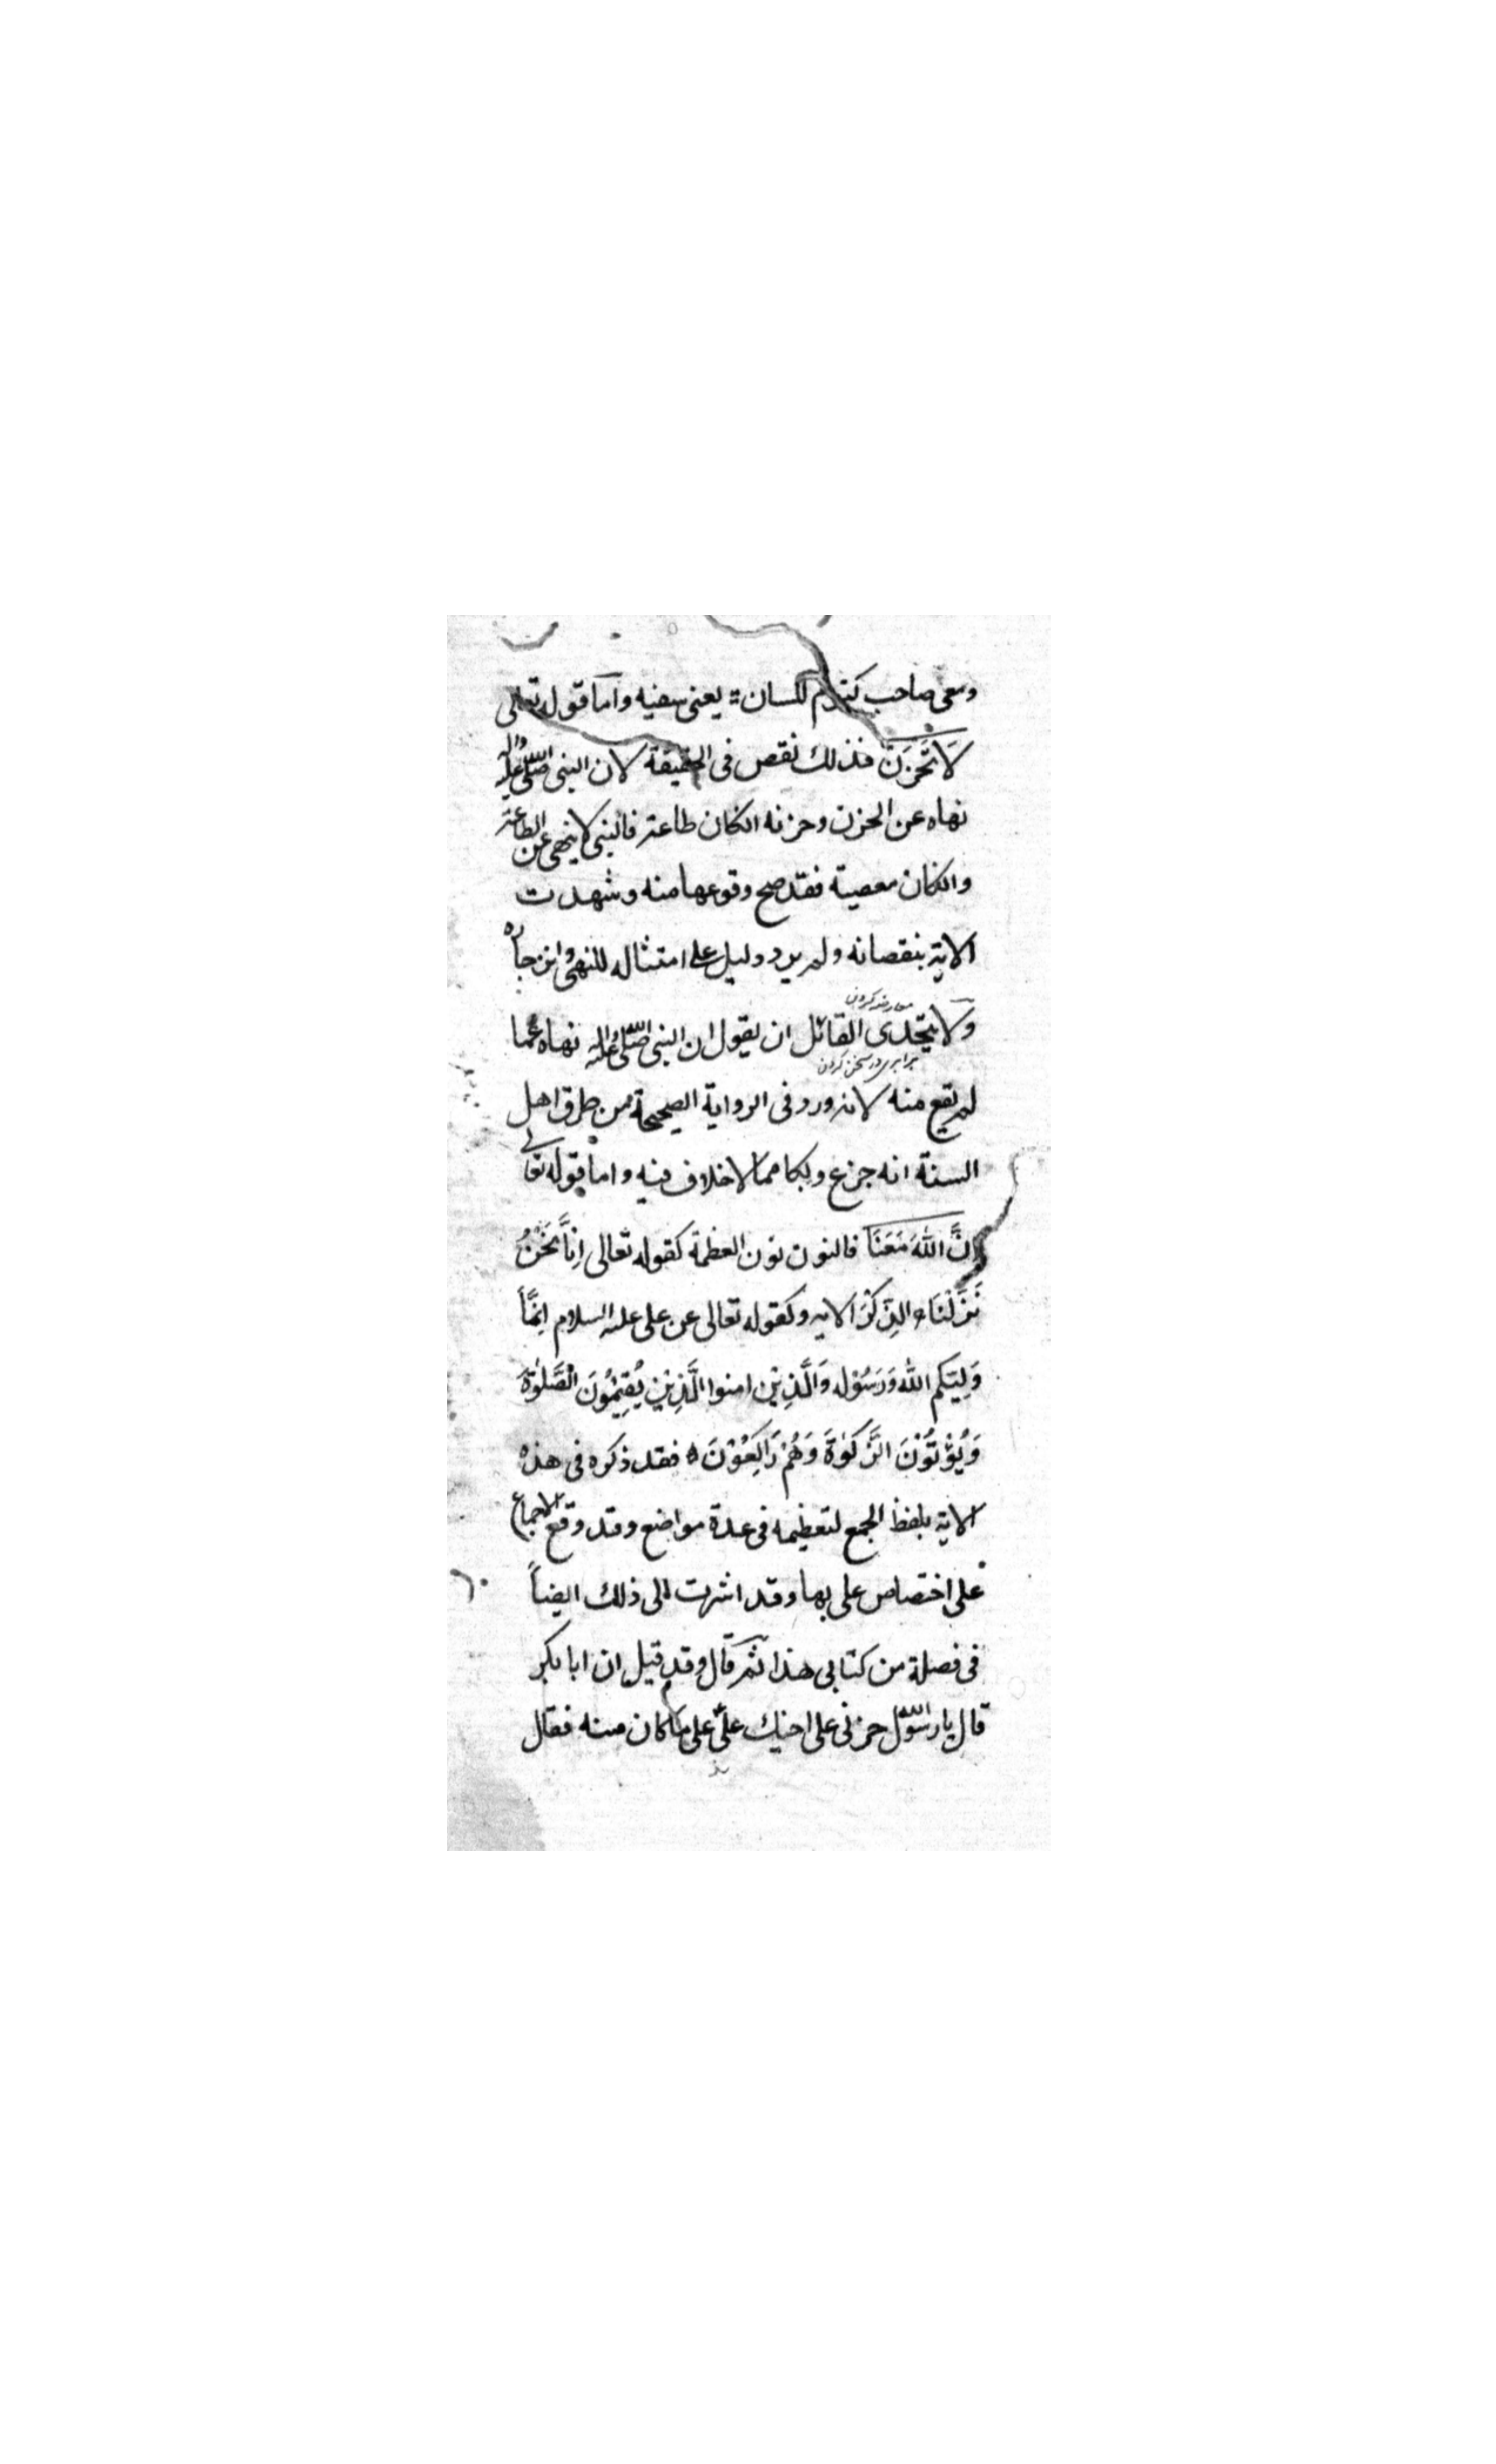 ومعى صاحب كتوم للسان يعنى سفيه واما قوله تعالى
لَا تَحْزَنْ فذلك نقص فى الحقيقة لان النبى صلى الله عليه واله
نهاه عن الحزن وحزنه انكان طاعة فالنبى لا ينهى عن الطاعة
وانكان معصية فقد صح وقوعها منه وشهدت
الاية بنقصانه ولم يرد دليل على امتثاله للنهى وانزجاره
ولا يتحدى القائل ان يقول ان النبى صلى الله عليه واله نهاه عما
برابرى در سخن كردن
لم يقع منه لانه ورد فى الرواية الصحيحة من طرق اهل
السنة انه جزع وبكا مما لاخلاف فيه واما قوله تعالى
اِنَّ اللهَ مَعَنَا فالنون نون العظمة كقوله تعالى اِنَّا نَحْنُ
نَزَّلْنَا الذِّكْرَ الايه وكقوله تعالى عن على عليه السلام اِنَّمَا
وَلِيُّكُم الله وَرَسُوْله وَالَّذِيْن امنوا الَّذِيْنَ يُقِيْمُوْنَ الصَّلوٰةَ
وَيُؤْتُوْنَ الزَّكَوٰةَ وَهُمْ رَاكِعُوْنَ فقد ذكره فى هذه
الاية بلفظ الجمع لتعظيمه فى عدة مواضع وقد وقع الاجماع
على اختصاص على بها وقد اشرت الى ذلك ايضاً
فى فصلة من كتابى هذا ثم قال وقد قيل ان ابا بكر
قال يا رسول الله حزنى على اخيك علىّ على ما كان منه فقال